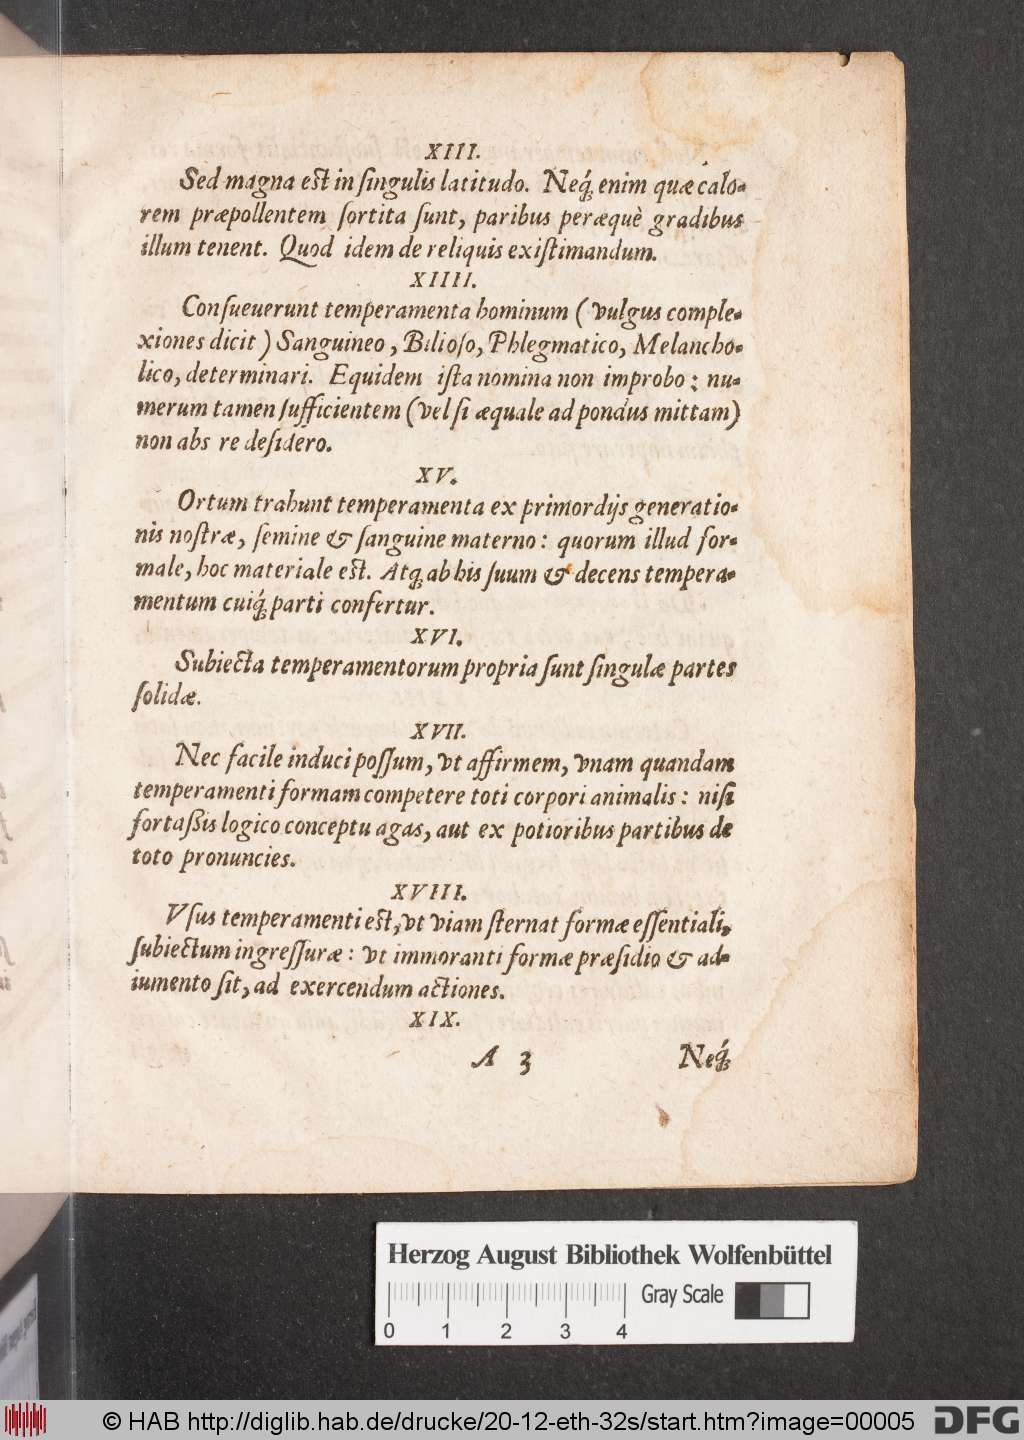 XIII.
Sed magna est in ſingulis latitudo. Neq́; enim quæ calo-
rem præpollentem ſortita ſunt, paribus peræquè gradibus
illum tenent. Quod idem de reliquis exiſtimandum.
XIIII.
Conſueuerunt temperamenta hominum (vulgus comple-
xiones dicit) Sanguineo, Bilioſo, Phlegmatico, Melancho-
lico, determinari. Equidem iſta nomina non improbo: nu-
merum tamen ſufficientem (vel ſi æquale ad pondus mittam)
non abs re deſidero.
XV.
Ortum trahunt temperamenta ex primordijs generatio-
nis noſtræ, ſemine & ſanguine materno: quorum illud for-
male, hoc materiale est. Atq; ab his ſuum & decens tempera-
mentum cuiq́; parti confertur.
XVI.
Subiecta temperamentorum propria ſunt ſingulæ partes
ſolidæ.
XVII.
Nec facile induci poſſum, vt affirmem, vnam quandam
temperamenti formam competere toti corpori animalis: niſi
fortaßis logico conceptu agas, aut ex potioribus partibus de
toto pronuncies.
XVIII.
Vſus temperamenti est, vt viam ſternat formæ eſſentiali,
ſubiectum ingreſſuræ: vt immoranti formæ præſidio & ad-
iumento ſit, ad exercendum actiones.
XIX.
A 3 Neq́;
Herzog August Bibliothek Wolfenbüttel
Gray Scale
0 1 2 3 4
© HAB http://diglib.hab.de/drucke/20-12-eth-32s/start.htm?image=00005
DFG